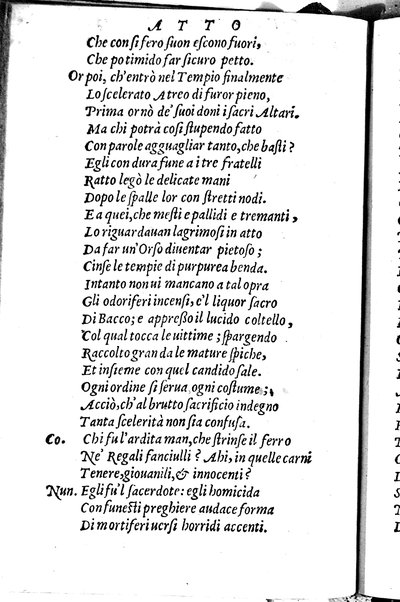 ATTO
Che con sì fero suon escono fuori,
Che po timido far sicuro petto.
Or poi, ch'entrò nel Tempio finalmente
Lo scelerato Atreo di furor pieno,
Prima ornò de' suoi doni i sacri Altari.
Ma chi potrà così stupendo fatto
Con parole agguagliar tanto, che basti?
Egli con dura fune a i tre fratelli
Ratto legò le delicate mani
Dopo le spalle lor con stretti nodi.
E a quei, che mesti e pallidi e tremanti,
Lo riguardauan lagrimosi in atto
Da far un'Orso diuentar pietoso;
Cinse le tempie di purpurea benda.
Intanto non ui mancano a tal opra
Gli odoriferi incensi, e'l liquor sacro
Di Bacco; e appresso il lucido coltello,
Col qual tocca le uittime; spargendo
Raccolto gran da le mature spiche,
Et insieme con quel candido sale.
Ogni ordine si serua ogni costume;
Acciò, ch'al brutto sacrificio indegno
Tanta sceleritá non sia confusa.
Co. Chi fu l'ardita man, che strinse il ferro
Ne' Regali fanciulli? Ahi, in quelle carni
Tenere, giouanili, & innocenti?
Nun. Egli fu'l sacerdote: egli homicida
Con funesti preghiere audace forma
Di mortiferi uersi horridi accenti.